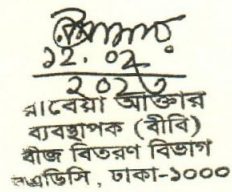 ১২.০২
২০২৩
রাবেয়া আক্তার
ব্যবস্থাপক (বীবি)
বীজ বিতরণ বিভাগ
বিএডিসি, ঢাকা-১০০০